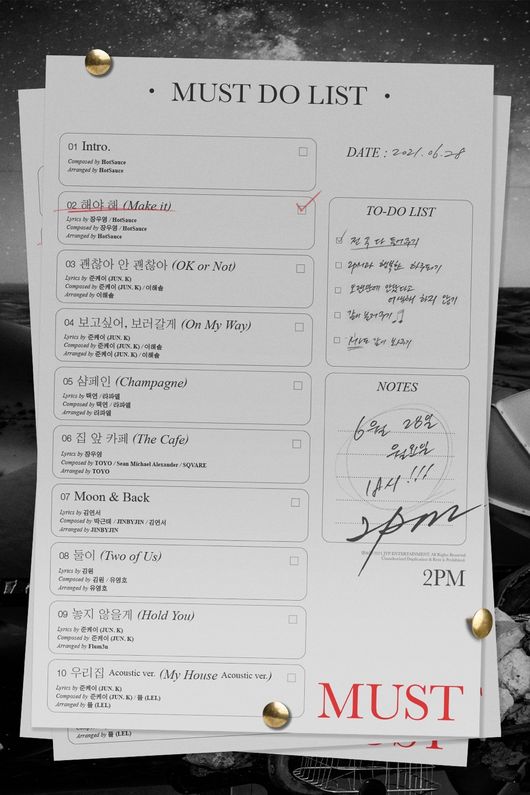 • MUST DO LIST •
01 Intro.
Composed by HotSauce
Arranged by HotSauce
02 해야 해 (Make it)
Lyrics by 장우영 / HotSauce
Composed by 장우영 / HotSauce
Arranged by HotSauce
03 괜찮아 안 괜찮아 (OK or Not)
Lyrics by 준케이 (JUN. K)
Composed by 준케이 (JUN. K) / 이해솔
Arranged by 이해솔
04 보고싶어, 보러갈게 (On My Way)
Lyrics by 준케이 (JUN. K)
Composed by 준케이 (JUN. K) / 이해솔
Arranged by 이해솔
05 샴페인 (Champagne)
Lyrics by 택연 / 라파엘
Composed by 택연 / 라파엘
Arranged by 라파엘
06 집 앞 카페 (The Cafe)
Lyrics by 장우영
Composed by TOYO / Sean Michael Alexander / SQVARE
Arranged by TOYO
07 Moon & Back
Lyrics by 김연서
Composed by 박근태 / JINBYJIN / 김연서
Arranged by JINBYJIN
08 둘이 (Two of Us)
Lyrics by 김원
Composed by 김원 / 유영호
Arranged by 유영호
09 놓지 않을게 (Hold You)
Lyrics by 준케이 (JUN. K)
Composed by 준케이 (JUN. K)
Arranged by Flum3n
10 우리집 Acoustic ver. (My House Acoustic ver.)
Lyrics by 준케이 (JUN. K)
Composed by 준케이 (JUN. K) / 뜰 (LEL)
Arranged by 뜰 (LEL)
Arranged by 뜰 (LEL)
DATE : 2021. 06. 28
TO-DO LIST
전 곡 다 들어주기
2PM과 행복한 하루되기
오랜만에 만났다고
어색해 하지 않기
같이 불러주기
NOTES
6월 28일
월요일
18시 !!!
2pm
2021 JYP ENTERTAINMENT. All Rights Reserved
Unauthorized Duplication & Rent is Prohibited.
2PM
MUST